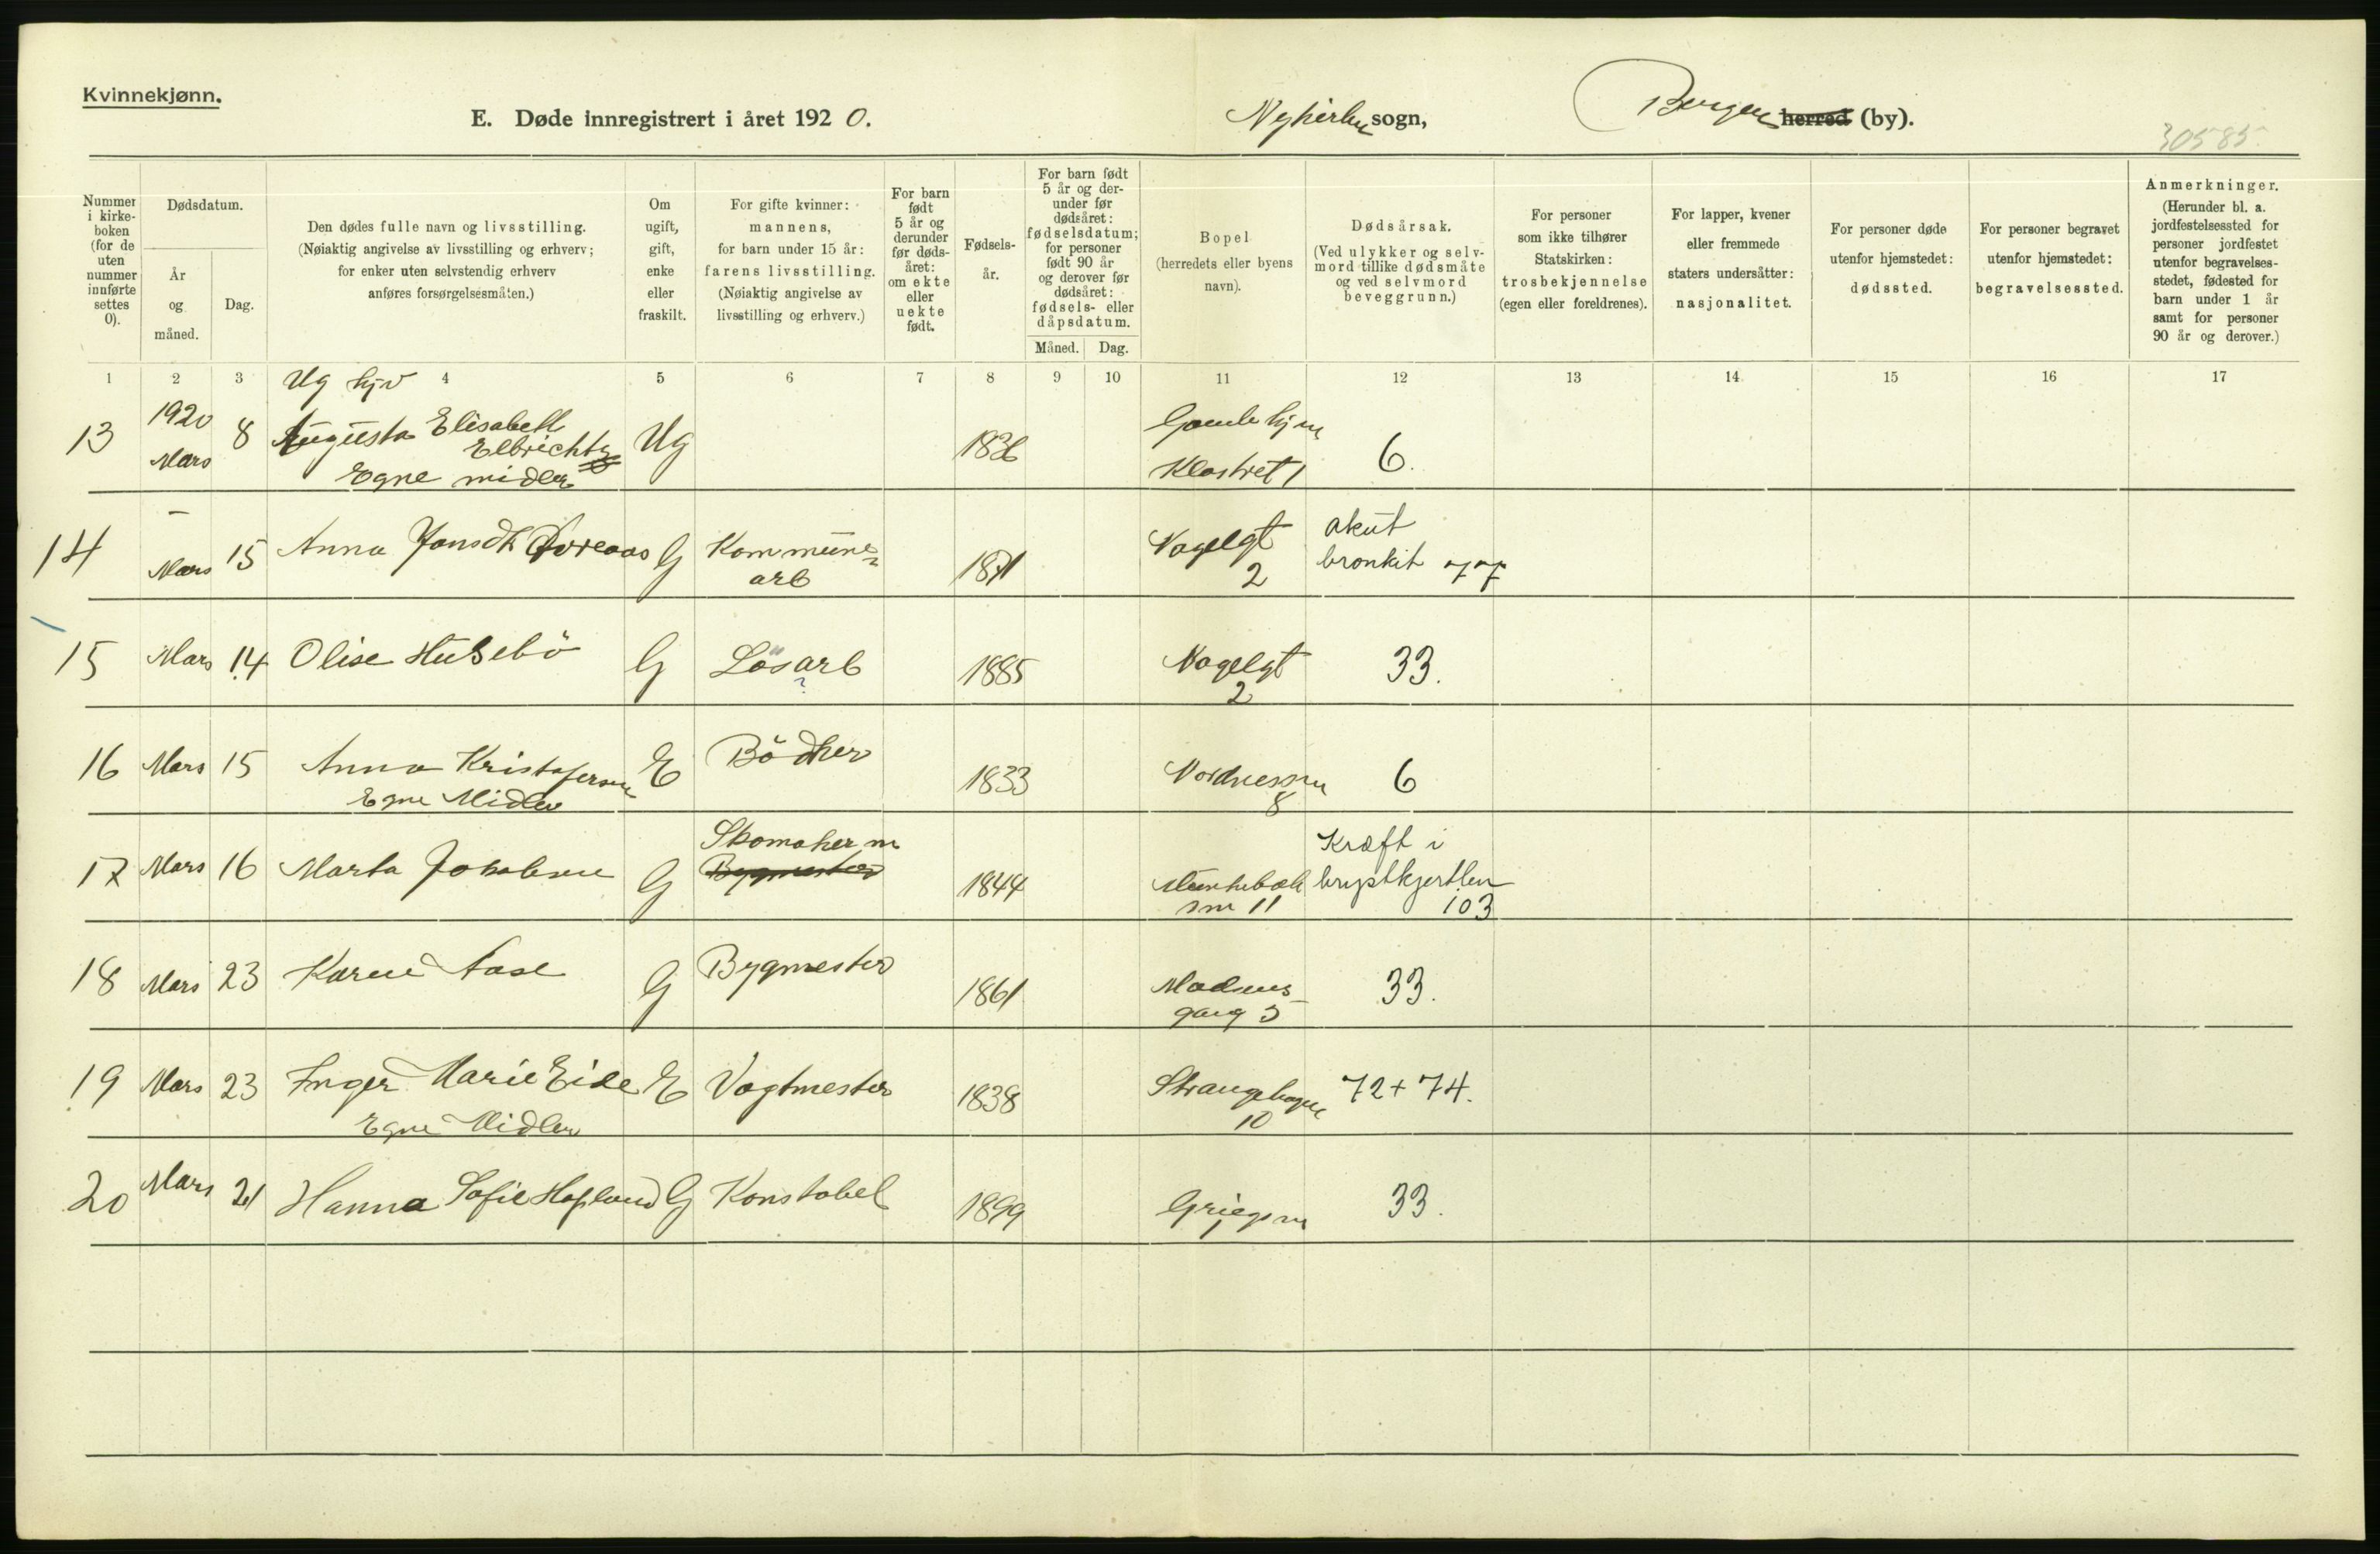 Kvinnekjønn.
E. Døde innregistrert i året 1920.
Nykirken sogn,
Bergen herred (by).
30585
Nummer i kirkeboken (for de uten nummer innførte settes 0).
Dødsdatum.
År og måned.
Dag.
Den dødes fulle navn og livsstilling.
(Nøiaktig angivelse av livsstilling og erhverv; for enker uten selvstendig erhverv anføres forsørgelsesmåten.)
Om ugift, gift, enke eller fraskilt.
For gifte kvinner: mannens, for barn under 15 år: farens livsstilling.
(Nøiaktig angivelse av livsstilling og erhverv.)
For barn født 5 år og derunder før dødsåret: om ekte eller uekte født.
Fødselsår.
For barn født 5 år og derunder før dødsåret: fødselsdatum; for personer født 90 år og derover før dødsåret: fødsels- eller dåpsdatum.
Måned. Dag.
Bopel (herredets eller byens navn).
Dødsårsak.
(Ved ulykker og selvmord tillike dødsmåte og ved selvmord beveggrunn.)
For personer som ikke tilhører Statskirken: trosbekjennelse (egen eller foreldrenes).
For lapper, kvener eller fremmede staters undersåtter: nasjonalitet.
For personer døde utenfor hjemstedet: dødssted.
For personer begravet utenfor hjemstedet: begravelsessted.
Anmerkninger.
(Herunder bl. a. jordfestelsessted for personer jordfestet utenfor begravelsesstedet, fødested for barn under 1 år samt for personer 90 år og derover.)
1 2 3 4 5 6 7 8 9 10 11 12 13 14 15 16 17
Ug hjv
13 1920 Mars 8 Augusta Elisabeth Elbrichtz Ug 1836 Gamle hjm Klostret 1 6.
Egne midler
14 – Mars 15 Anna Jonsdt G Kommune arb 1871 Nagelgt 2 akut bronkit 77
15 Mars 14 Olise Husebö G Lösarb ? 1885 Nagelgt 2 33.
16 Mars 15 Anna Kristofersen E Bödker 1833 Nordnessm 8 6
Egne Midler
17 Mars 16 Marta Jakobsen G Skomaker m Bygmester 1844 Muntebæk sm 11 Kræft i brystkjertlen 103
18 Mars 23 Karen Aase G Bygmester 1861 Madsens gang 3 33.
19 Mars 23 Inger Marie Eide E Vagtmester 1838 Strangehagen 10 72+74.
Egne Midler
20 Mars 21 Hanna Sofie Hopland G Konstabel 1899 Griegsm 1 33.